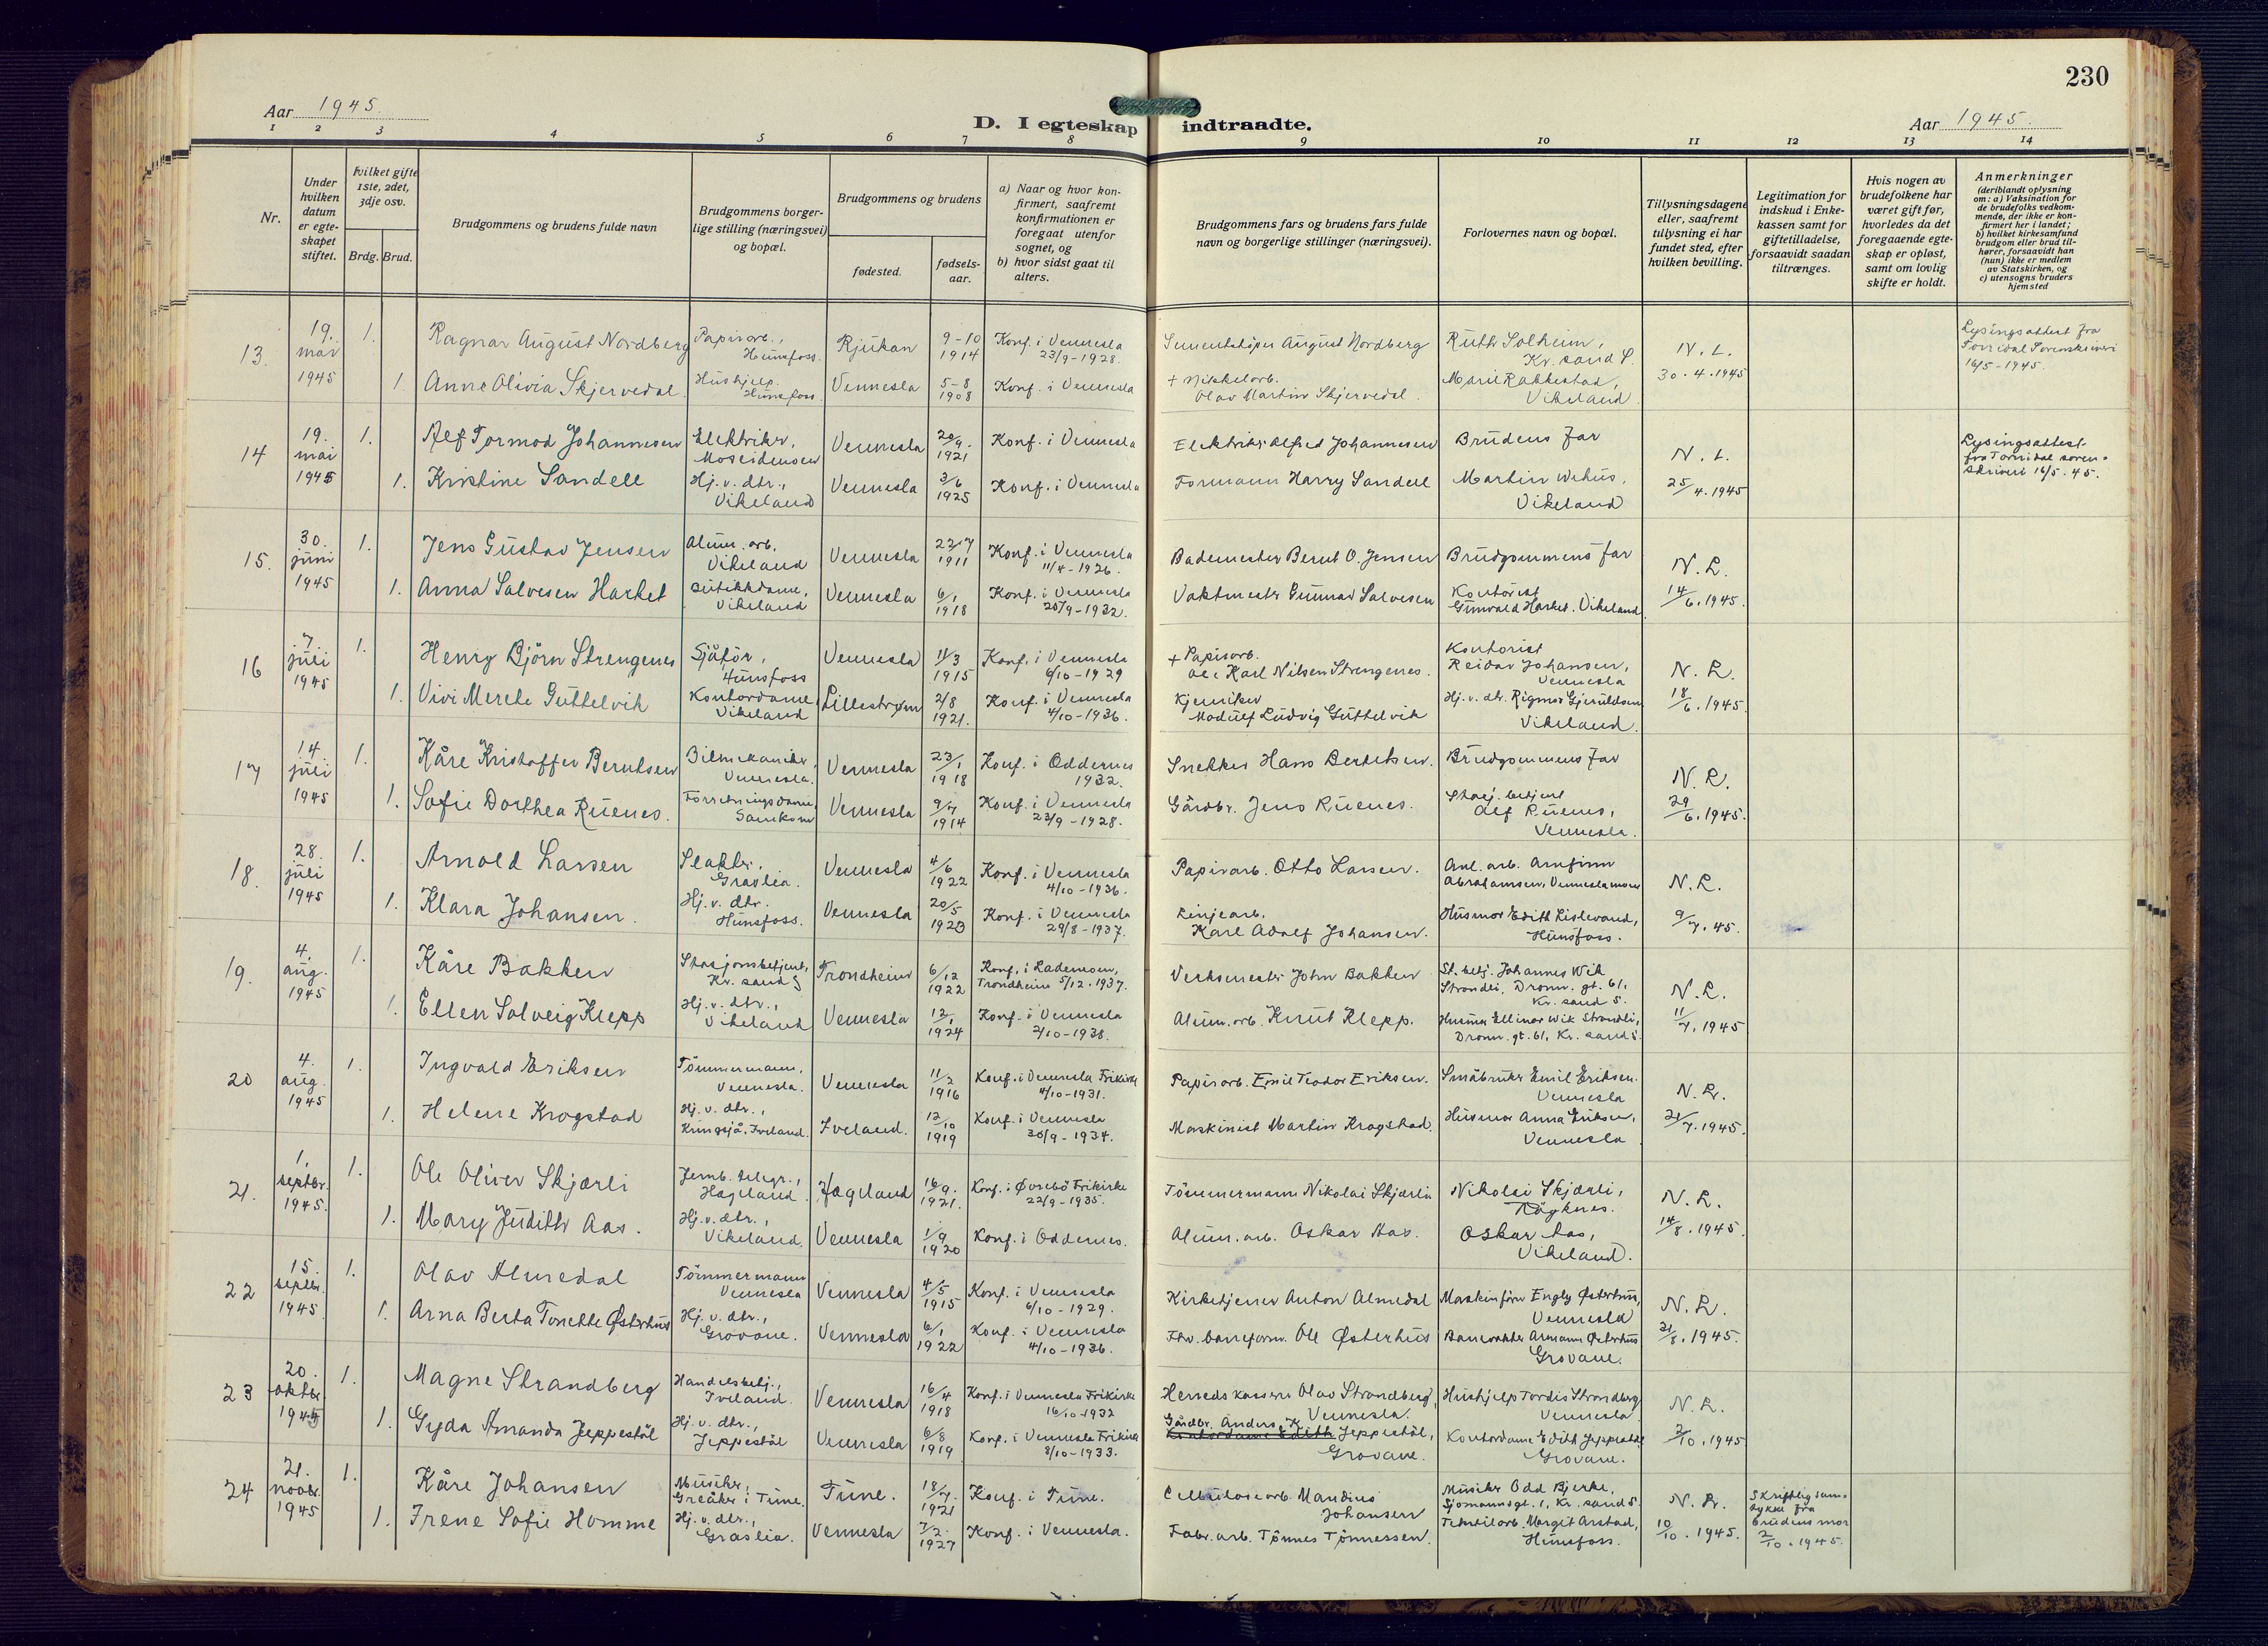 230
Aar 1945.
D. I egteskap indtraadte.
Aar 1945.
1 2 3 4 5 6 7 8 9 10 11 12 13 14
Nr.
Under hvilken datum er egteskapet stiftet.
Hvilket gifte 1ste, 2det, 3dje osv.
Brdg. Brud.
Brudgommens og brudens fulde navn
Brudgommens borgerlige stilling (næringsvei) og bopæl.
Brudgommens og brudens
fødested.
fødselsaar.
a) Naar og hvor konfirmert, saafremt konfirmationen er foregaat utenfor sognet, og
b) hvor sidst gaat til alters.
Brudgommens fars og brudens fars fulde navn og borgerlige stillinger (næringsvei).
Forlovernes navn og bopæl.
Tillysningsdagene eller, saafremt tillysning ei har fundet sted, efter hvilken bevilling.
Legitimation for indskud i Enkekassen samt for giftetilladelse, forsaavidt saadan tiltrænges.
Hvis nogen av brudefolkene har været gift før, hvorledes da det foregaaende egteskap er opløst, samt om lovlig skifte er holdt.
Anmerkninger
(deriblandt oplysning om: a) Vaksination for de brudefolks vedkommende, der ikke er konfirmert her i landet;
b) hvilket kirkesamfund brudgom eller brud tilhører, forsaavidt han (hun) ikke er medlem av Statskirken, og
c) utensogns bruders hjemsted
13. 19. mai 1945 1. Ragnar August Nordberg Papirarb., Hunsfoss. Rjukan 9-10 1914 Konf. i Vennesla 23/9-1928. August Nordberg Ruth Solheim, Kr.sand S. N. L. 30.4.1945 Lysingsattest fra Torridal Sorenskriveri 16/5-1945.
1. Anne Olivia Skjervedal. Hushjelp. Hunsfoss. Vennesla 5-8 1908 Konf. i Vennesla + Nikkelarb. Olav Martin Skjervedal. Marie Rakkestad, Vikeland
14 19. mai 1945 1. Alf Tormod Johannesen Elektriker, Moseidmoen Vennesla 20/9. 1921 Konf. i Vennesla Elektriker Alfred Johannesen Brudens far N. L. 25/4.1945 Lysingsattest fra Torridal sorenskriveri 16/5.45.
1. Kristine Sandell Hj. v. dtr., Vikeland Vennesla 3/6 1925 Konf. i Vennesla Formann Harry Sandell Martin Wehus, Vikeland
15. 30. juni 1945 1. Jens Gustav Jensen Alum. arb. Vikeland Vennesla 23/7 1911 Konf. i Vennesla 11/4-1926. Bademester Bernt O. Jensen Brudgommens far N. L. 14/6.1945.
1. Anna Salvesen Harket Butikkdame, Vikeland Vennesla 6/1 1918 Konf. i Vennesla 25/9-1932. Vaktmester Gunnar Salvesen Kontorist Gunvald Harket. Vikeland
16 7. juli 1945 1. Henry Björn Strengenes Sjåför, Hunsfoss Vennesla 11/3 1915 Konf. i Vennesla 6/10-1929 + Papirarb. Karl Nilsen Strengenes. Kontorist Reidar Johansen, Vennesla N. L. 18/6.1945.
1. Vivi Merete Guttelvik Kontordame, Vikeland Lillestrøm 2/8 1921. Konf. i Vennesla 4/10-1936. Kjemiker Modulf Ludvig Guttelvik Hj. v. dtr. Rigmor Gjeruldsen Vikeland.
17 14. juli 1945 1. Kåre Kristoffer Berntsen Bilmekaniker, Vennesla. Vennesla 23/1 1918 Konf. i Oddernes 1932. Snekker Hans Berntsen. Brudgommens far N. L. 29/6.1945.
1. Sofie Dorthea Ruenes. Forretningsdame, Samkom Vennesla 9/7 1914 Konf. i Vennesla 23/9-1928. Gårdbr. Jens Ruenes. Stasj. betjent Alf Ruenes, Vennesla.
18. 28. juli 1945 1. Arnold Larsen Slakter. Graslia. Vennesla 4/6 1922 Konf. i Vennesla 4/10-1936. Papirarb. Otto Larsen. Anl. arb. Arnfinn Abrahamsen, Venneslamoen N. L. 9/7.45.
1. Klara Johansen. Hj. v. dtr. Hunsfoss. Vennesla 20/5 1923 Konf. i Vennesla 29/8-1937. Linjearb. Karl Adolf Johansen. Husmor Edith Lislevand, Hunsfoss.
19. 4. aug. 1945 1. Kåre Bakken Stasjonsbetjent, Kr.sand S Trondheim 6/12 1922 Konf. i Lademoen, Trondheim 5/12.1937. Verksmester John Bakken St. betj. Johannes Wik Strandli, Dronn. gt. 61, Kr.sand S. N. L. 11/7.1945
1. Ellen Solveig Klepp Hj. v. dtr., Vikeland Vennesla 12/1 1924 Konf. i Vennesla 2/10-1938. Alum. arb. Knut Klepp. Husmor Ellinor Wik Strandli, Dronn. gt. 61, Kr.sand S.
20 4. aug. 1945 1. Ingvald Eriksen Tömmermann, Vennesla. Vennesla 11/2 1916 Konf. i Vennesla Frikirke 4/10-1931. Papirarb. Emil Teodor Eriksen. Småbruker Emil Eriksen. Vennesla N. L. 21/7.1945.
1. Helene Krogstad Hj. v. dtr., Kringsjå, Iveland. Iveland. 12/10 1919 Konf. i Vennesla 30/9-1934. Maskinist Martin Krogstad. Husmor Anna Eriksen, Vennesla
21. 1. septbr. 1945. 1. Ole Oliver Skjærli Jernb. telegr., Hægeland Hægeland 16/9. 1921. Konf. i Øvrebö Frikirke 22/9-1935. Tömmermann Nikolai Skjærli Nikolai Skjærli, N. L. 14/8.1945
1. Mary Judith Aas. Hj. v. dtr., Vikeland. Vennesla 1/9 1920 Konf. i Oddernes. Alum. arb. Oskar Aas. Oskar Aas, Vikeland.
22 15. septbr. 1945 1. Olav Almedal Tömmermann Vennesla Vennesla 4/5 1915 Konf. i Vennesla 6/10-1929. Kirketjener Anton Almedal Maskinförer Engly Østerhus, Vennesla N. L. 21/8.1945.
1. Arna Berta Tonette Østerhus Hj. v. dtr., Grovane. Vennesla 6/1 1922 Konf. i Vennesla 4/10-1936. Fhv. baneform. Ole Østerhus Banevokter Armann Østerhus Grovane.
23 20. oktbr. 1945 1. Magne Strandberg Handelsbetj., Iveland. Vennesla 16/4 1918 Konf. i Vennesla Frikirke 16/10-1932 Herredskasserer Olav Strandberg, Vennesla. Hushjelp Tordis Strandberg Vennesla N. L. 2/10.1945
1. Gyda Amanda Jeppestöl Hj. v. dtr., Jeppestöl Vennesla 6/8 1919 Konf. i Vennesla Frikirke 8/10-1933. Gårdbr. Anders K. Kontordame Edith Jeppestöl, Grovane. Kontordame Edith Jeppestöl Grovane.
24 21. novbr. 1945 1. Kåre Johansen Musiker, Greåker i Tune. Tune. 18/7. 1921 Konf. i Tune. Cellulosearb. Mandius Johansen Musiker Odd Bjerke, Sjömannsgt. 1, Kr.sand S. N. L. 10/10.1945. Skriftlig samtykke fra brudens mor 2/10.1945.
1. Irene Sofie Homme Hj. v. dtr., Graslia. Vennesla 7/2. 1927 Konf. i Vennesla. Fabr. arb. Tönnes Tönnessen. Tekstilarb. Margit Arstad, Hunsfoss.